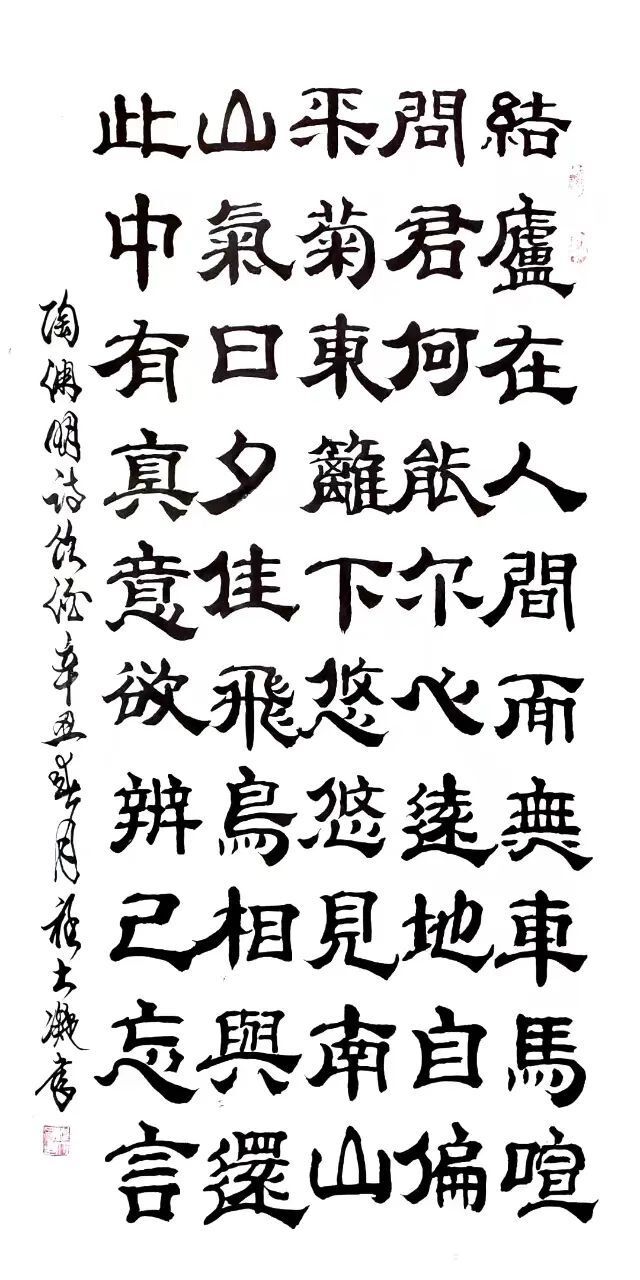 結廬在人間而無車馬喧
問君何能尔心遠地自偏
采菊東籬下悠悠見南山
山氣日夕佳飛鳥相與還
此中有真意欲辨已忘言
陶渊明诗饮酒辛丑春月书